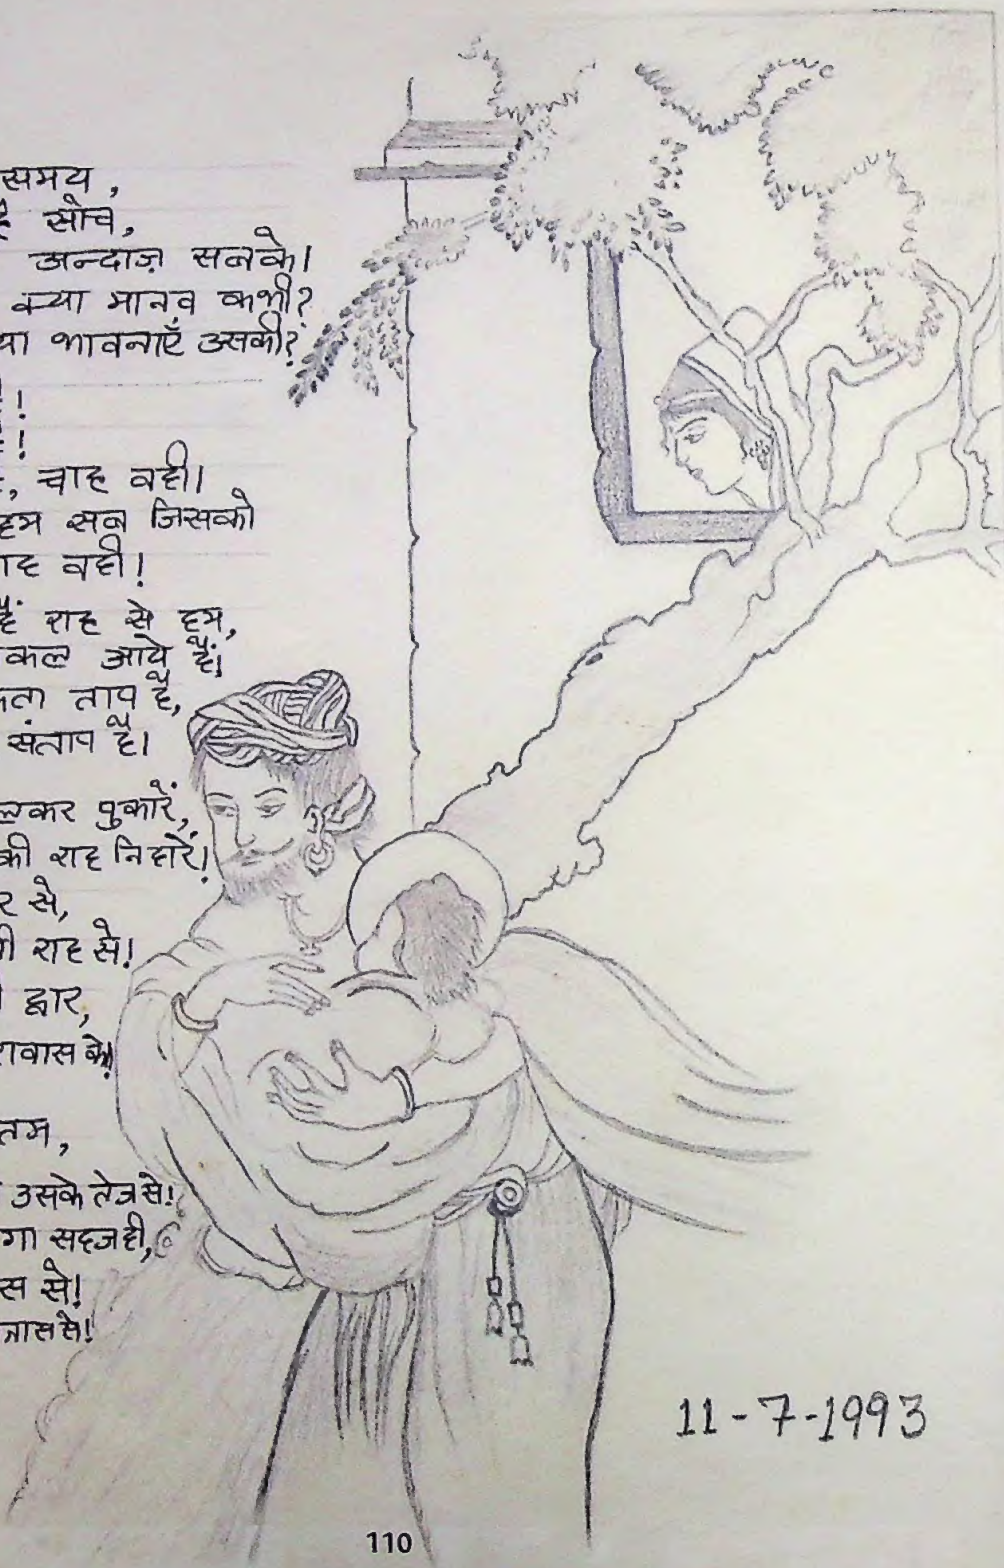 समय,
है सोच,
अन्दाज़ सबके।
क्या मानव कभी?
भावनाएँ उसकी?
!
!
, चाह वही।
हम सब जिसको
राह वही!
हैं राह से हम,
निकल आये हैं।
ताप है,
संताप है।
मिलकर पुकारें,
की राह निहारें!
से,
की राह से!
द्वार,
!
तम,
उसके तेज से!
सहज ही,
से!
त्रास से!
11-7-1993
110